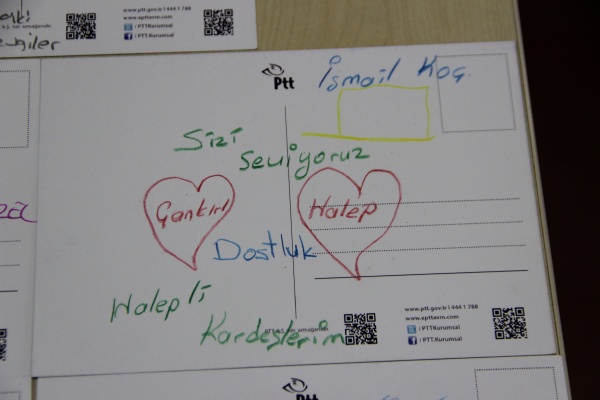 www.ptt.gov.tr I 444 1 788
www.epttavm.com
/ PTTKurumsal
/ PTT.Kurumsal
Ptt
İsmail Koç
Sizi
Seviyoruz
Çankırı
Halep
Dostluk
Halepli
Kardeşlerim
www.ptt.gov.tr I 444 1 788
www.epttavm.com
/ PTTKurumsal
/ PTT.Kurumsal
Ptt